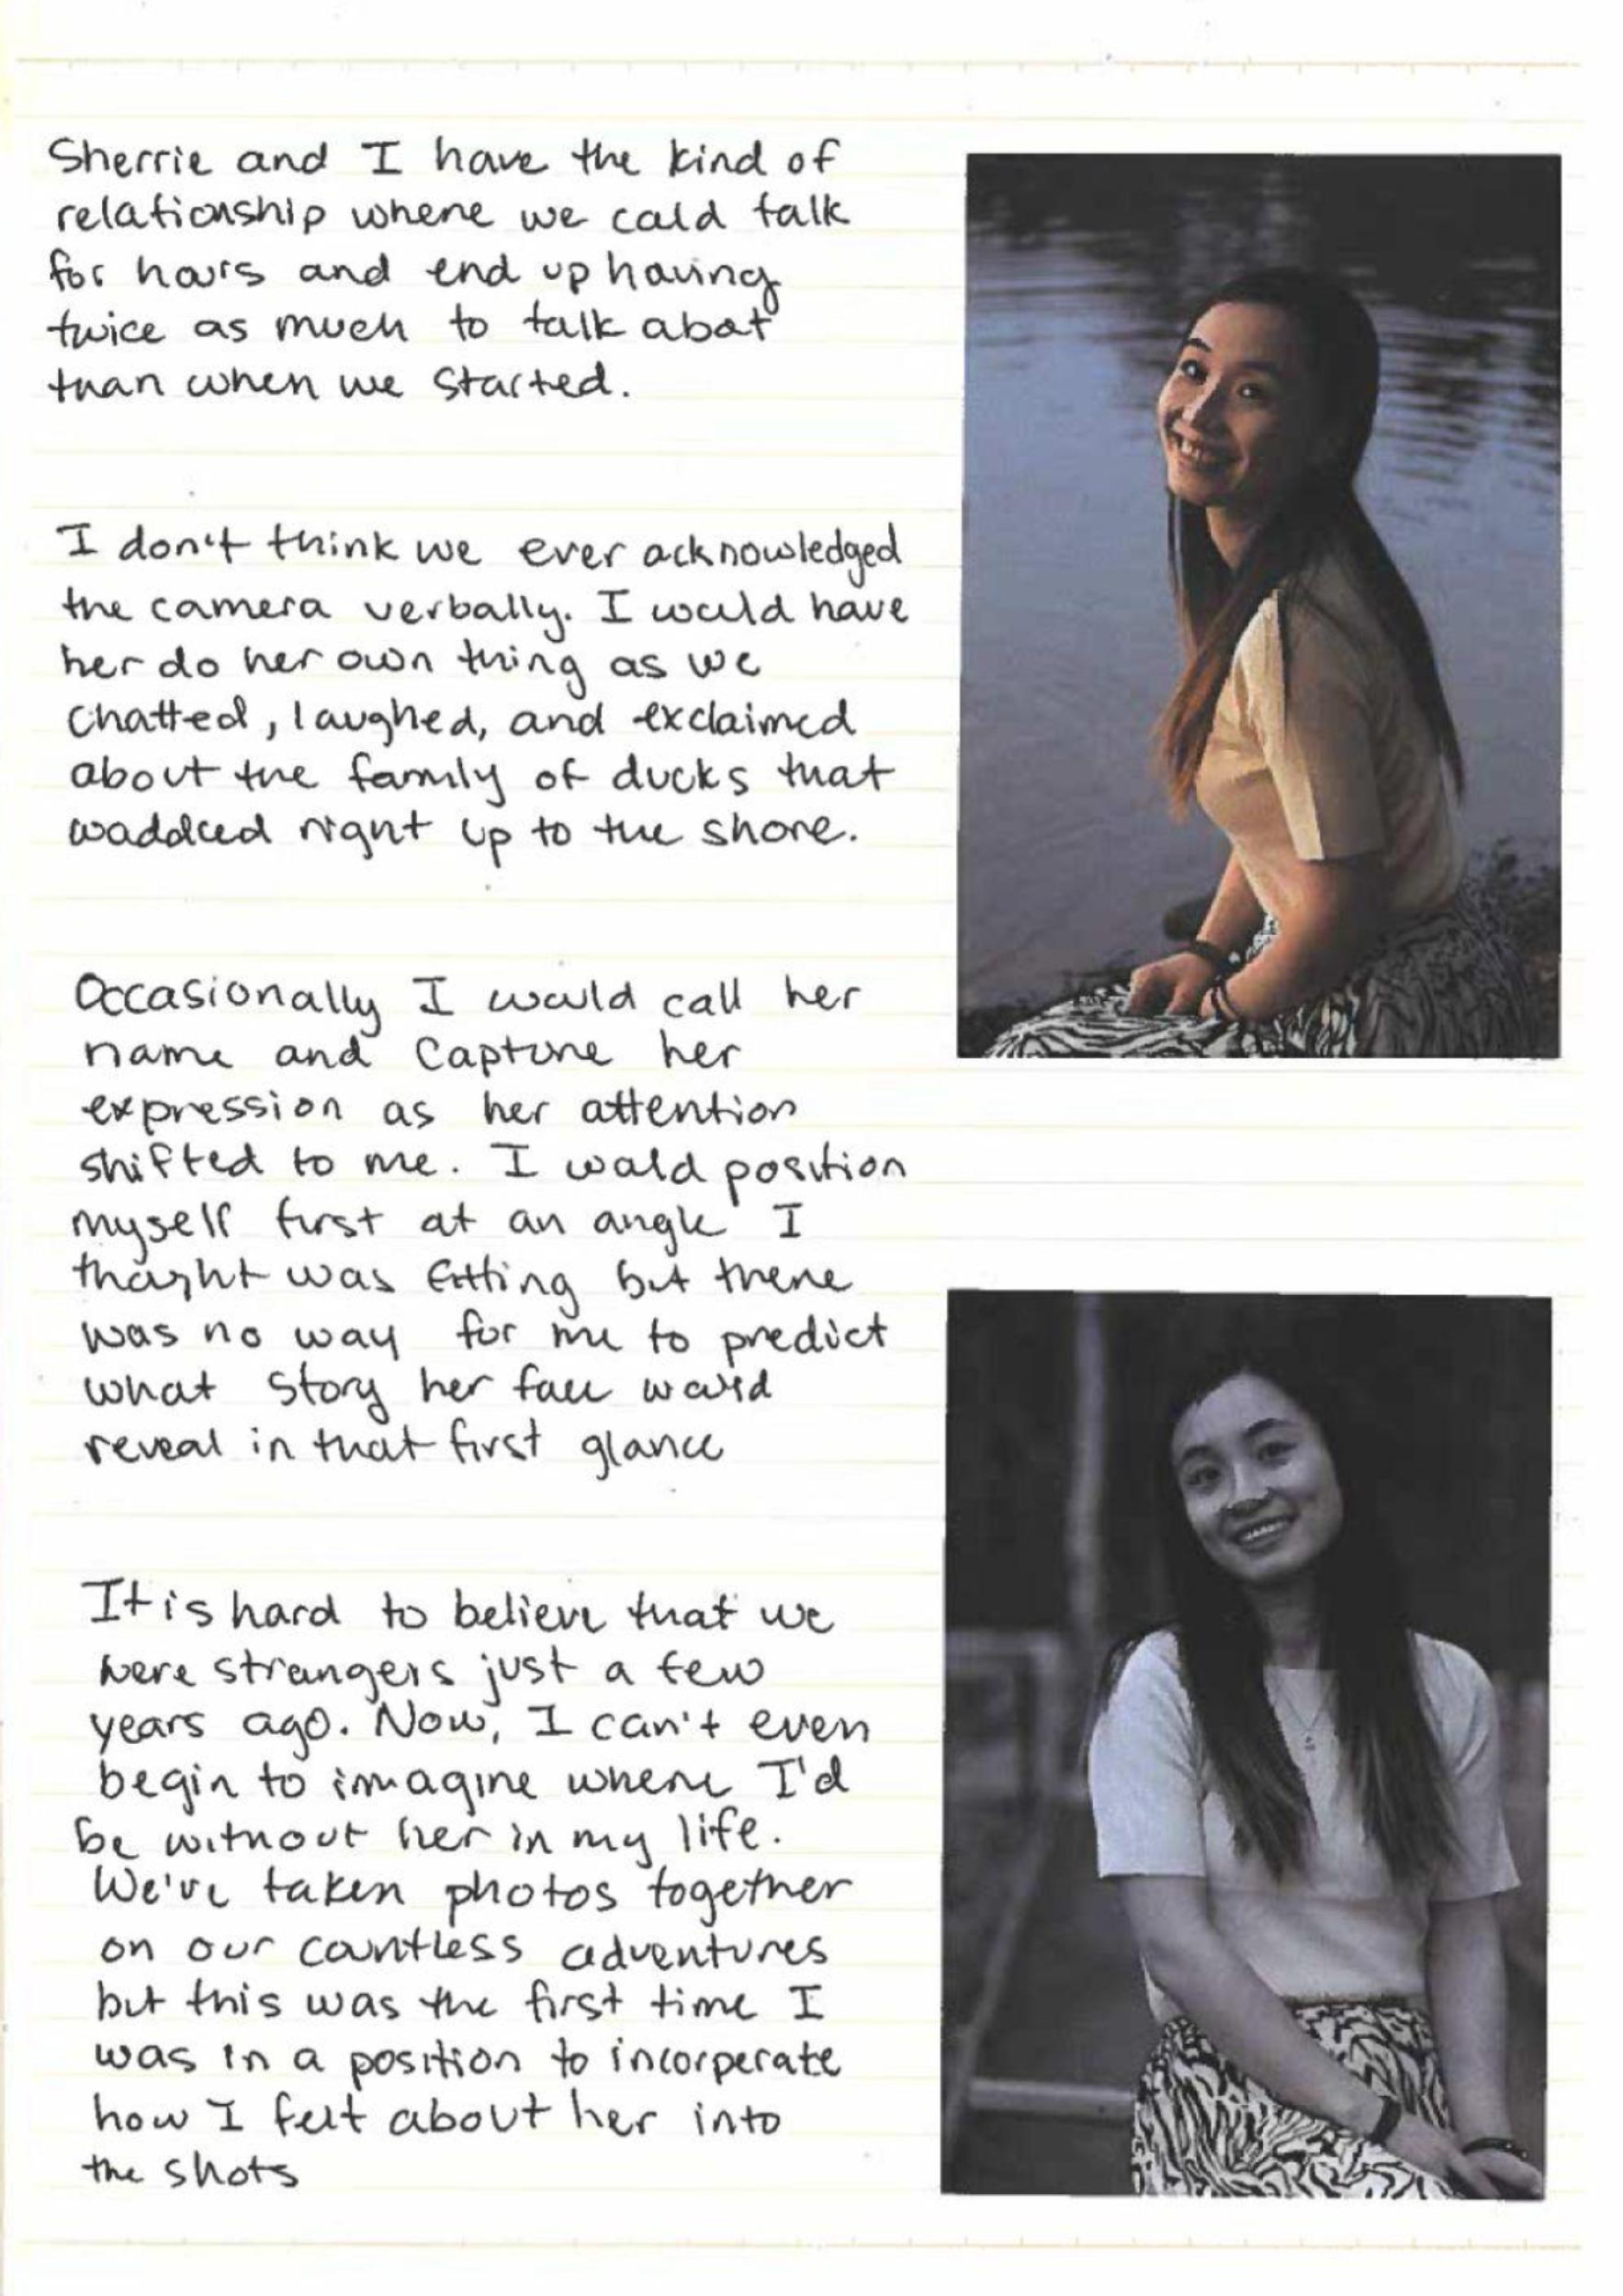 Sherrie and I have the kind of
relationship where we could talk
for hours and end up having
twice as much to talk about
than when we started.
I don't think we ever acknowledged
the camera verbally. I would have
her do her own thing as we
chatted, laughed, and exclaimed
about the family of ducks that
waddled right up to the shore.
Occasionally I would call her
name and capture her
expression as her attention
shifted to me. I would position
myself first at an angle I
thought was fitting but there
was no way for me to predict
what story her face would
reveal in that first glance
It is hard to believe that we
were strangers just a few
years ago. Now, I can't even
begin to imagine where I'd
be without her in my life.
We've taken photos together
on our countless adventures
but this was the first time I
was in a position to incorperate
how I felt about her into
the shots